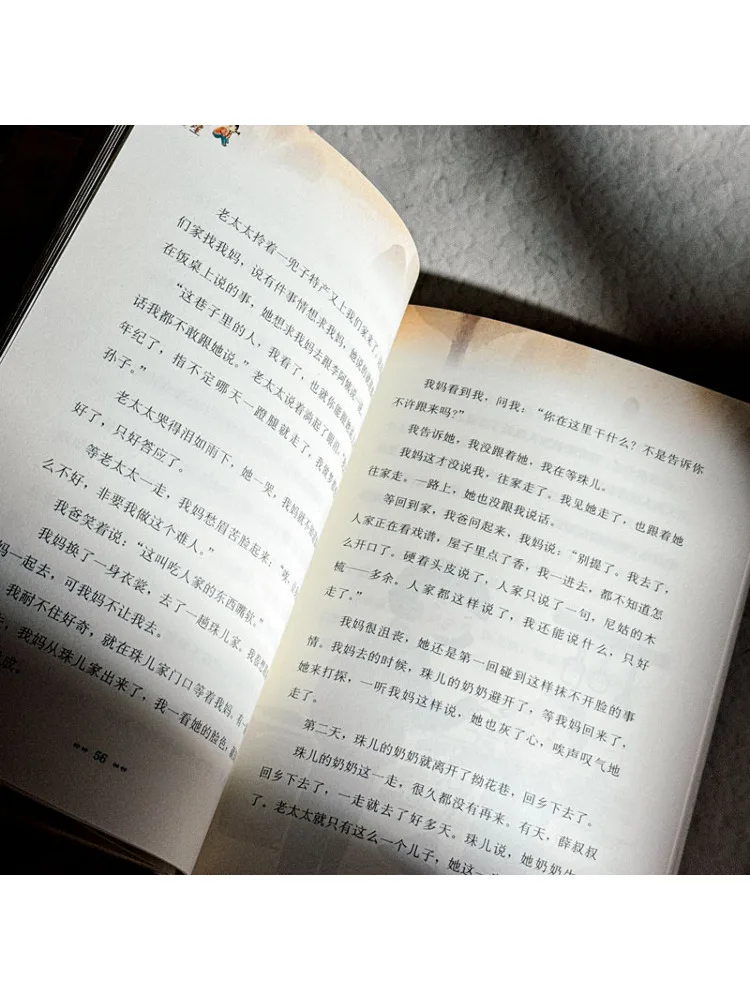 老太太拎着一兜子特产又上我们家来了
们家找我妈，说有件事情想求我妈，她说
在饭桌上说的事，她想求我妈去跟李阿姨说一说
“这巷子里的人，我看了，也就你能
话我都不敢跟她说。”老太太说着淌起了眼泪
年纪了，指不定哪天一蹬腿就走了，我就
孙子。”
老太太哭得泪如雨下，她一哭，我妈就不
好了，只好答应了。
等老太太一走，我妈愁眉苦脸起来：“唉
么不好，非要我做这个难人。”
我爸笑着说：“这叫吃人家的东西嘴软。”
我妈换了一身衣裳，去了一趟珠儿家，我
妈一起去，可我妈不让我去。
我耐不住好奇，就在珠儿家门口等着我妈。有一
我妈从珠儿家出来了，我一看她的脸色，
56
我妈看到我，问我：“你在这里干什么？不是告诉你
不许跟来吗？”
我告诉她，我没跟着她，我在等珠儿。
我妈这才没说我，往家走了。我见她走了，也跟着她
往家走。一路上，她也没跟我说话。
等回到家，我爸问起来，我妈说：“别提了。我去了，
人家正在看戏谱，屋子里点了香，我一进去，都不知道怎
么开口了。硬着头皮说了，人家只说了一句，尼姑的木
梳——多余。人家都这样说了，我还能说什么，只好
走了。”
我妈很沮丧，她还是第一回碰到这样抹不开脸的事
情。我妈去的时候，珠儿的奶奶避开了，等我妈回来了，
她来打探，一听我妈这样说，她也灰了心，唉声叹气地
走了。
第二天，珠儿的奶奶就离开了拗花巷，回乡下去了。
珠儿的奶奶这一走，很久都没有再来。有天，薛叔叔
回乡下去了，一走就去了好多天。珠儿说，她奶奶生
了。老太太就只有这么一个儿子，她这一